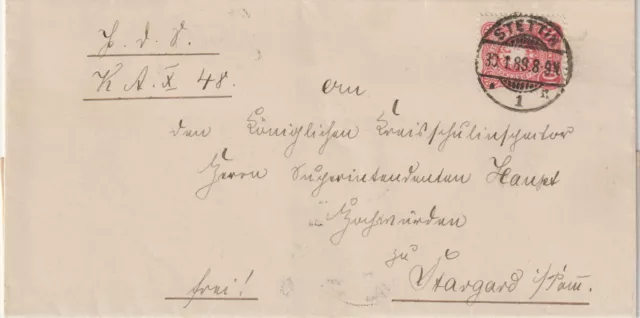 H. d. S.
K A. X 48.
STETTIN
1
an
den Königlichen Kreisschulinspektor
Herrn Superintendenten Haupt
Hochwürden
zu
frei!
Stargard i/Pom.